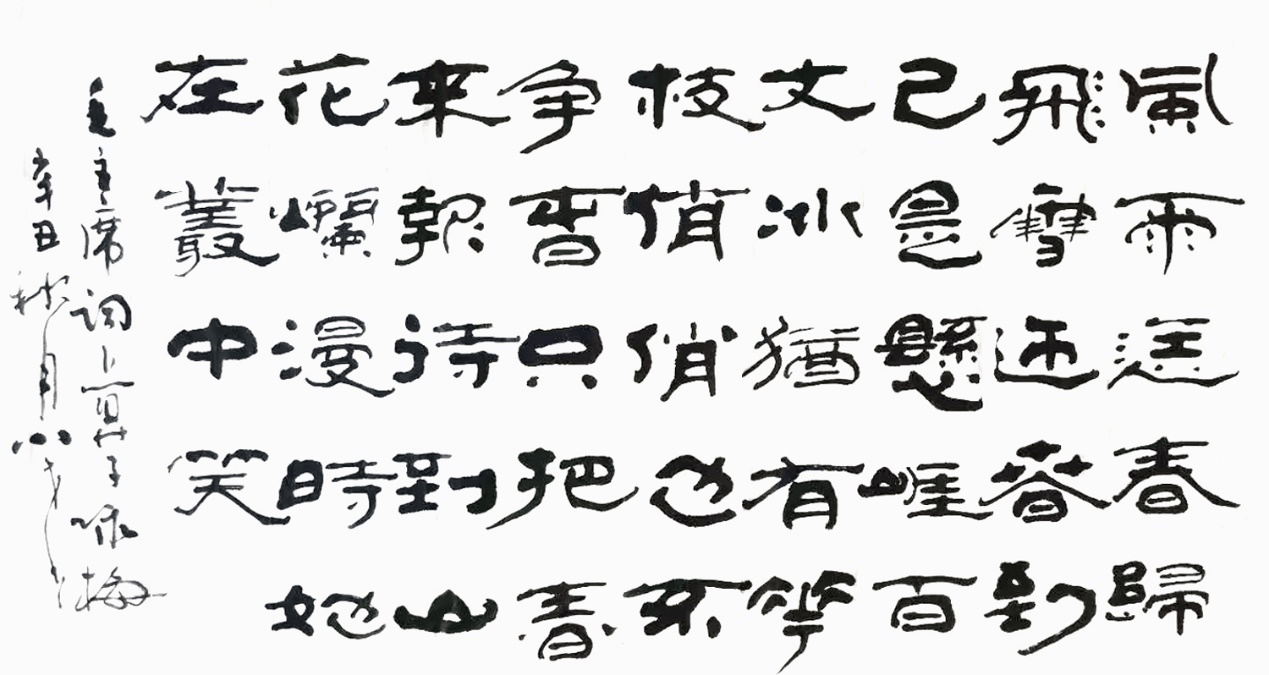 風雨送春歸
飛雪迎春到
已是懸崖百
丈冰猶有花
枝俏俏也不
争春只把春
來報待到山
花爛漫時她
在叢中笑
毛主席詞卜算子咏梅
辛丑秋月